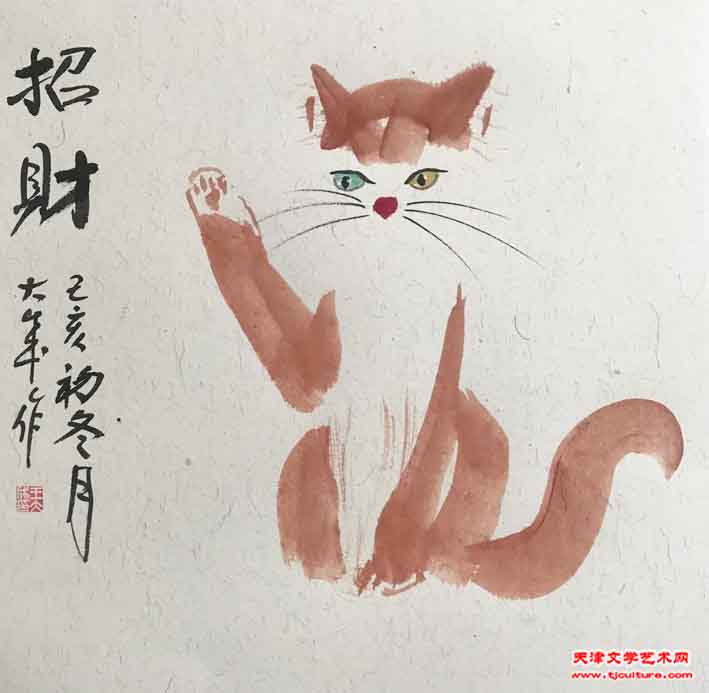 招財
己亥初冬月
大 作
天津文学艺术网
www.tjculture.com